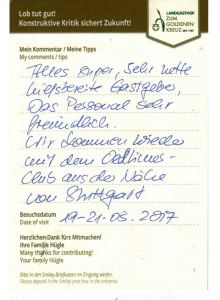 Lob tut gut!
Konstruktive Kritik sichert Zukunft!
LANDGASTHOF
ZUM
GOLDENEN
KREUZ
Mein Kommentar / Meine Tipps
My comments / tips
Alles super, sehr nette
hilfsbereite Gastgeber,
Das Personal sehr
freundlich.
Wir kommen wieder
mit dem Oldtimer-
Club aus der Nähe
von Stuttgart
Besuchsdatum
Date of visit
19-21.08.2017
Herzlichen Dank fürs Mitmachen!
Ihre Familie Hügle
Many thanks for contributing!
Your family Hügle
Bitte in den Smiley-Briefkasten im Eingang werfen.
Please deposit in the Smiley post box in the entrance.